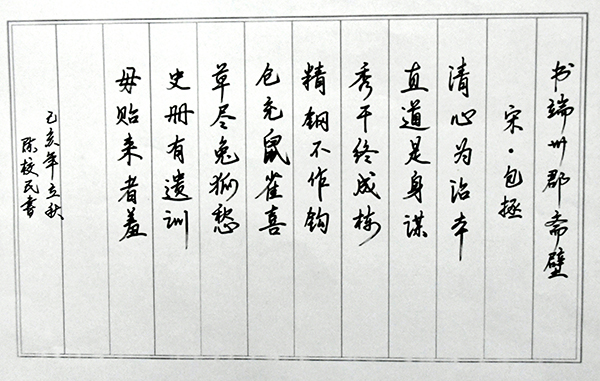 书端州郡斋壁
宋·包拯
清心为治本
直道是身谋
秀干终成栋
精钢不作钩
仓充鼠雀喜
草尽兔狐愁
史册有遗训
毋贻来者羞
己亥年立秋
陈校民书